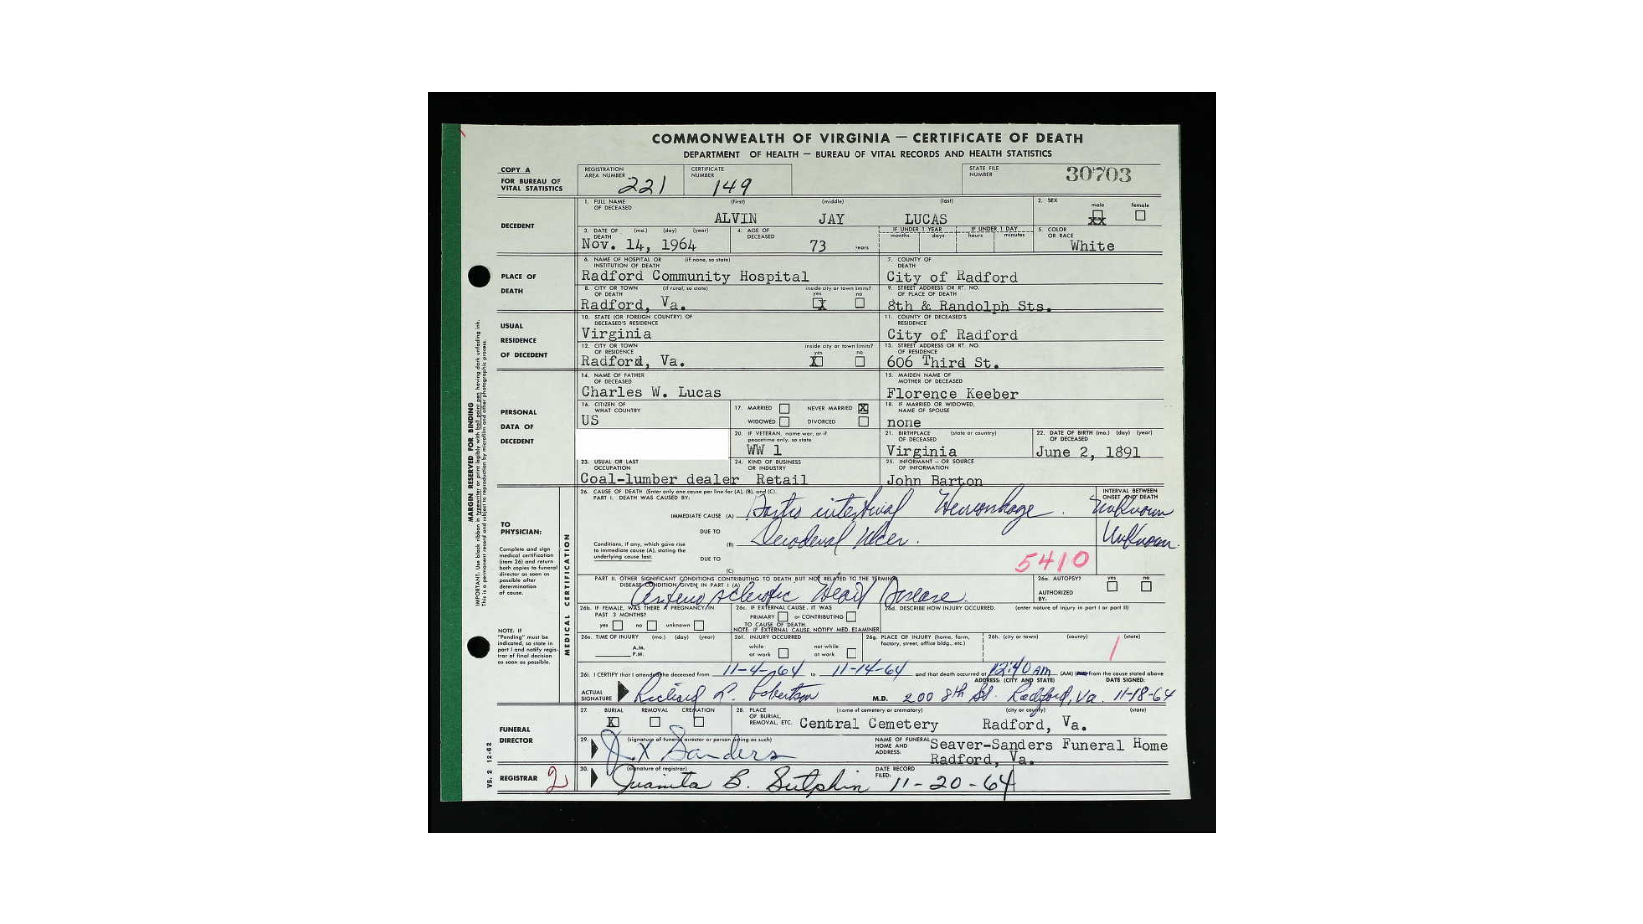 COMMONWEALTH OF VIRGINIA — CERTIFICATE OF DEATH
DEPARTMENT OF HEALTH — BUREAU OF VITAL RECORDS AND HEALTH STATISTICS
COPY A
FOR BUREAU OF
VITAL STATISTICS
REGISTRATION
AREA NUMBER 221
CERTIFICATE
NUMBER 149
STATE FILE
NUMBER 30703
DECEDENT
1. FULL NAME
OF DECEASED
(first) (middle) (last)
ALVIN JAY LUCAS
2. SEX
male female
xx
3. DATE OF DEATH (mo.) (day) (year)
Nov. 14, 1964
4. AGE OF
DECEASED
73 years
IF UNDER 1 YEAR
months days
IF UNDER 1 DAY
hours minutes
5. COLOR
OR RACE
White
PLACE OF
DEATH
6. NAME OF HOSPITAL OR (if none, so state)
INSTITUTION OF DEATH
Radford Community Hospital
7. COUNTY OF
DEATH
City of Radford
8. CITY OR TOWN (if rural, so state)
OF DEATH
inside city or town limits?
yes no
Radford, Va. X
9. STREET ADDRESS OR RT. NO.
OF PLACE OF DEATH
8th & Randolph Sts.
USUAL
RESIDENCE
OF DECEDENT
10. STATE (OR FOREIGN COUNTRY) OF
DECEASED'S RESIDENCE
Virginia
11. COUNTY OF DECEASED'S
RESIDENCE
City of Radford
12. CITY OR TOWN
OF RESIDENCE
inside city or town limits?
yes no
Radford, Va. X
13. STREET ADDRESS OR RT. NO.
OF RESIDENCE
606 Third St.
PERSONAL
DATA OF
DECEDENT
14. NAME OF FATHER
OF DECEASED
Charles W. Lucas
15. MAIDEN NAME OF
MOTHER OF DECEASED
Florence Keeber
16. CITIZEN OF
WHAT COUNTRY
US
17. MARRIED NEVER MARRIED X
WIDOWED DIVORCED
18. IF MARRIED OR WIDOWED,
NAME OF SPOUSE
none
20. IF VETERAN, name war, or if
peacetime only, so state
WW 1
21. BIRTHPLACE (state or country)
OF DECEASED
Virginia
22. DATE OF BIRTH (mo.) (day) (year)
OF DECEASED
June 2, 1891
23. USUAL OR LAST
OCCUPATION
Coal-lumber dealer
24. KIND OF BUSINESS
OR INDUSTRY
Retail
25. INFORMANT — OR SOURCE
OF INFORMATION
John Barton
TO
PHYSICIAN:
Complete and sign
medical certification
(item 26) and return
both copies to funeral
director as soon as
possible after
determination
of cause.
NOTE: If
"Pending" must be
indicated, so state in
part I and notify regis-
trar of final decision
as soon as possible.
MEDICAL CERTIFICATION
MARGIN RESERVED FOR BINDING
26. CAUSE OF DEATH (Enter only one cause per line for (A), (B), and (C).
PART I. DEATH WAS CAUSED BY:
INTERVAL BETWEEN
ONSET AND DEATH
IMMEDIATE CAUSE (A) Gastro intestinal Hemorrhage. Unknown
DUE TO
Conditions, if any, which gave rise
to immediate cause (A), stating the
underlying cause last.
(B) Duodenal Ulcer. Unknown
DUE TO
(C)
5410
PART II. OTHER SIGNIFICANT CONDITIONS CONTRIBUTING TO DEATH BUT NOT RELATED TO THE TERMINAL
DISEASE CONDITION GIVEN IN PART I (A)
Arteriosclerotic Heart Disease.
26a. AUTOPSY? yes no
AUTHORIZED
BY:
26b. IF FEMALE, WAS THERE A PREGNANCY IN
PAST 3 MONTHS?
yes no unknown
26c. IF EXTERNAL CAUSE, IT WAS
PRIMARY or CONTRIBUTING
TO CAUSE OF DEATH.
NOTE: IF EXTERNAL CAUSE NOTIFY MED. EXAMINER
26d. DESCRIBE HOW INJURY OCCURRED. (enter nature of injury in part I or part II)
26e. TIME OF INJURY (mo.) (day) (year)
A.M.
P.M.
26f. INJURY OCCURRED
while
at work
not while
at work
26g. PLACE OF INJURY (home, farm,
factory, street, office bldg., etc.)
26h. (city or town) (county) (state)
1
26i. I CERTIFY that I attended the deceased from 11-4-64 to 11-14-64 and that death occurred at 12:40 AM (AM) from the cause stated above
ADDRESS: (CITY AND STATE) DATE SIGNED:
ACTUAL
SIGNATURE Richard P. Robertson M.D. 200 8th St. Radford, Va. 11-18-64
FUNERAL
DIRECTOR
27. BURIAL REMOVAL CREMATION
X
28. PLACE
OF BURIAL,
REMOVAL, ETC.
(name of cemetery or crematory) (city or county) (state)
Central Cemetery Radford, Va.
29. (signature of funeral director or person acting as such)
Sanders
NAME OF FUNERAL
HOME AND
ADDRESS:
Seaver-Sanders Funeral Home
Radford, Va.
REGISTRAR 2
30. (signature of registrar)
Juanita B. Sutphin
DATE RECORD
FILED: 11-20-64
VS. 2 12-62